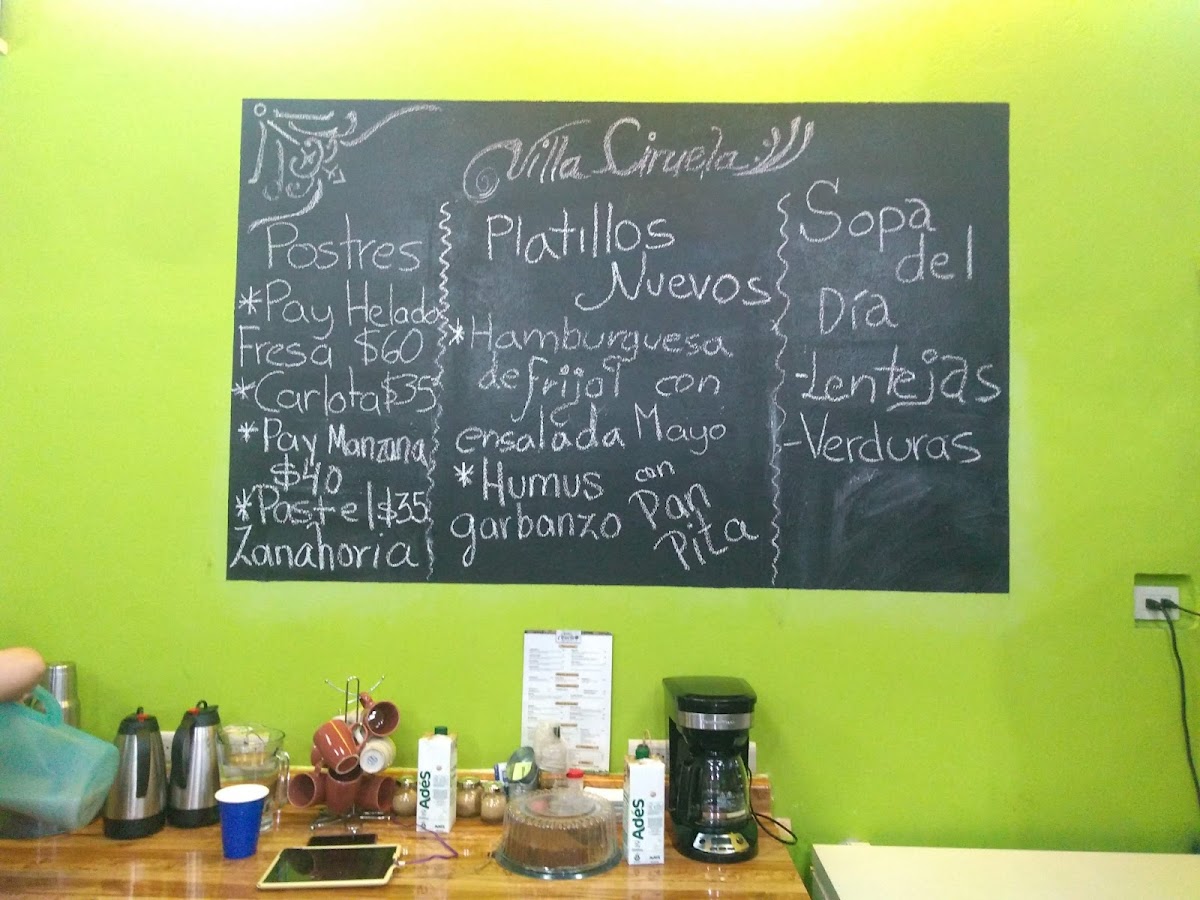 Villa Ciruela
Postres
*Pay Helado
Fresa $60
*Carlota $35
*Pay Manzana
$40
*Pastel $35
Zanahoria
Platillos
Nuevos
*Hamburguesa
de frijol con
ensalada Mayo
*Humus con
garbanzo Pan
Pita
Sopa
del
Día
-Lentejas
-Verduras
AdeS
AdeS